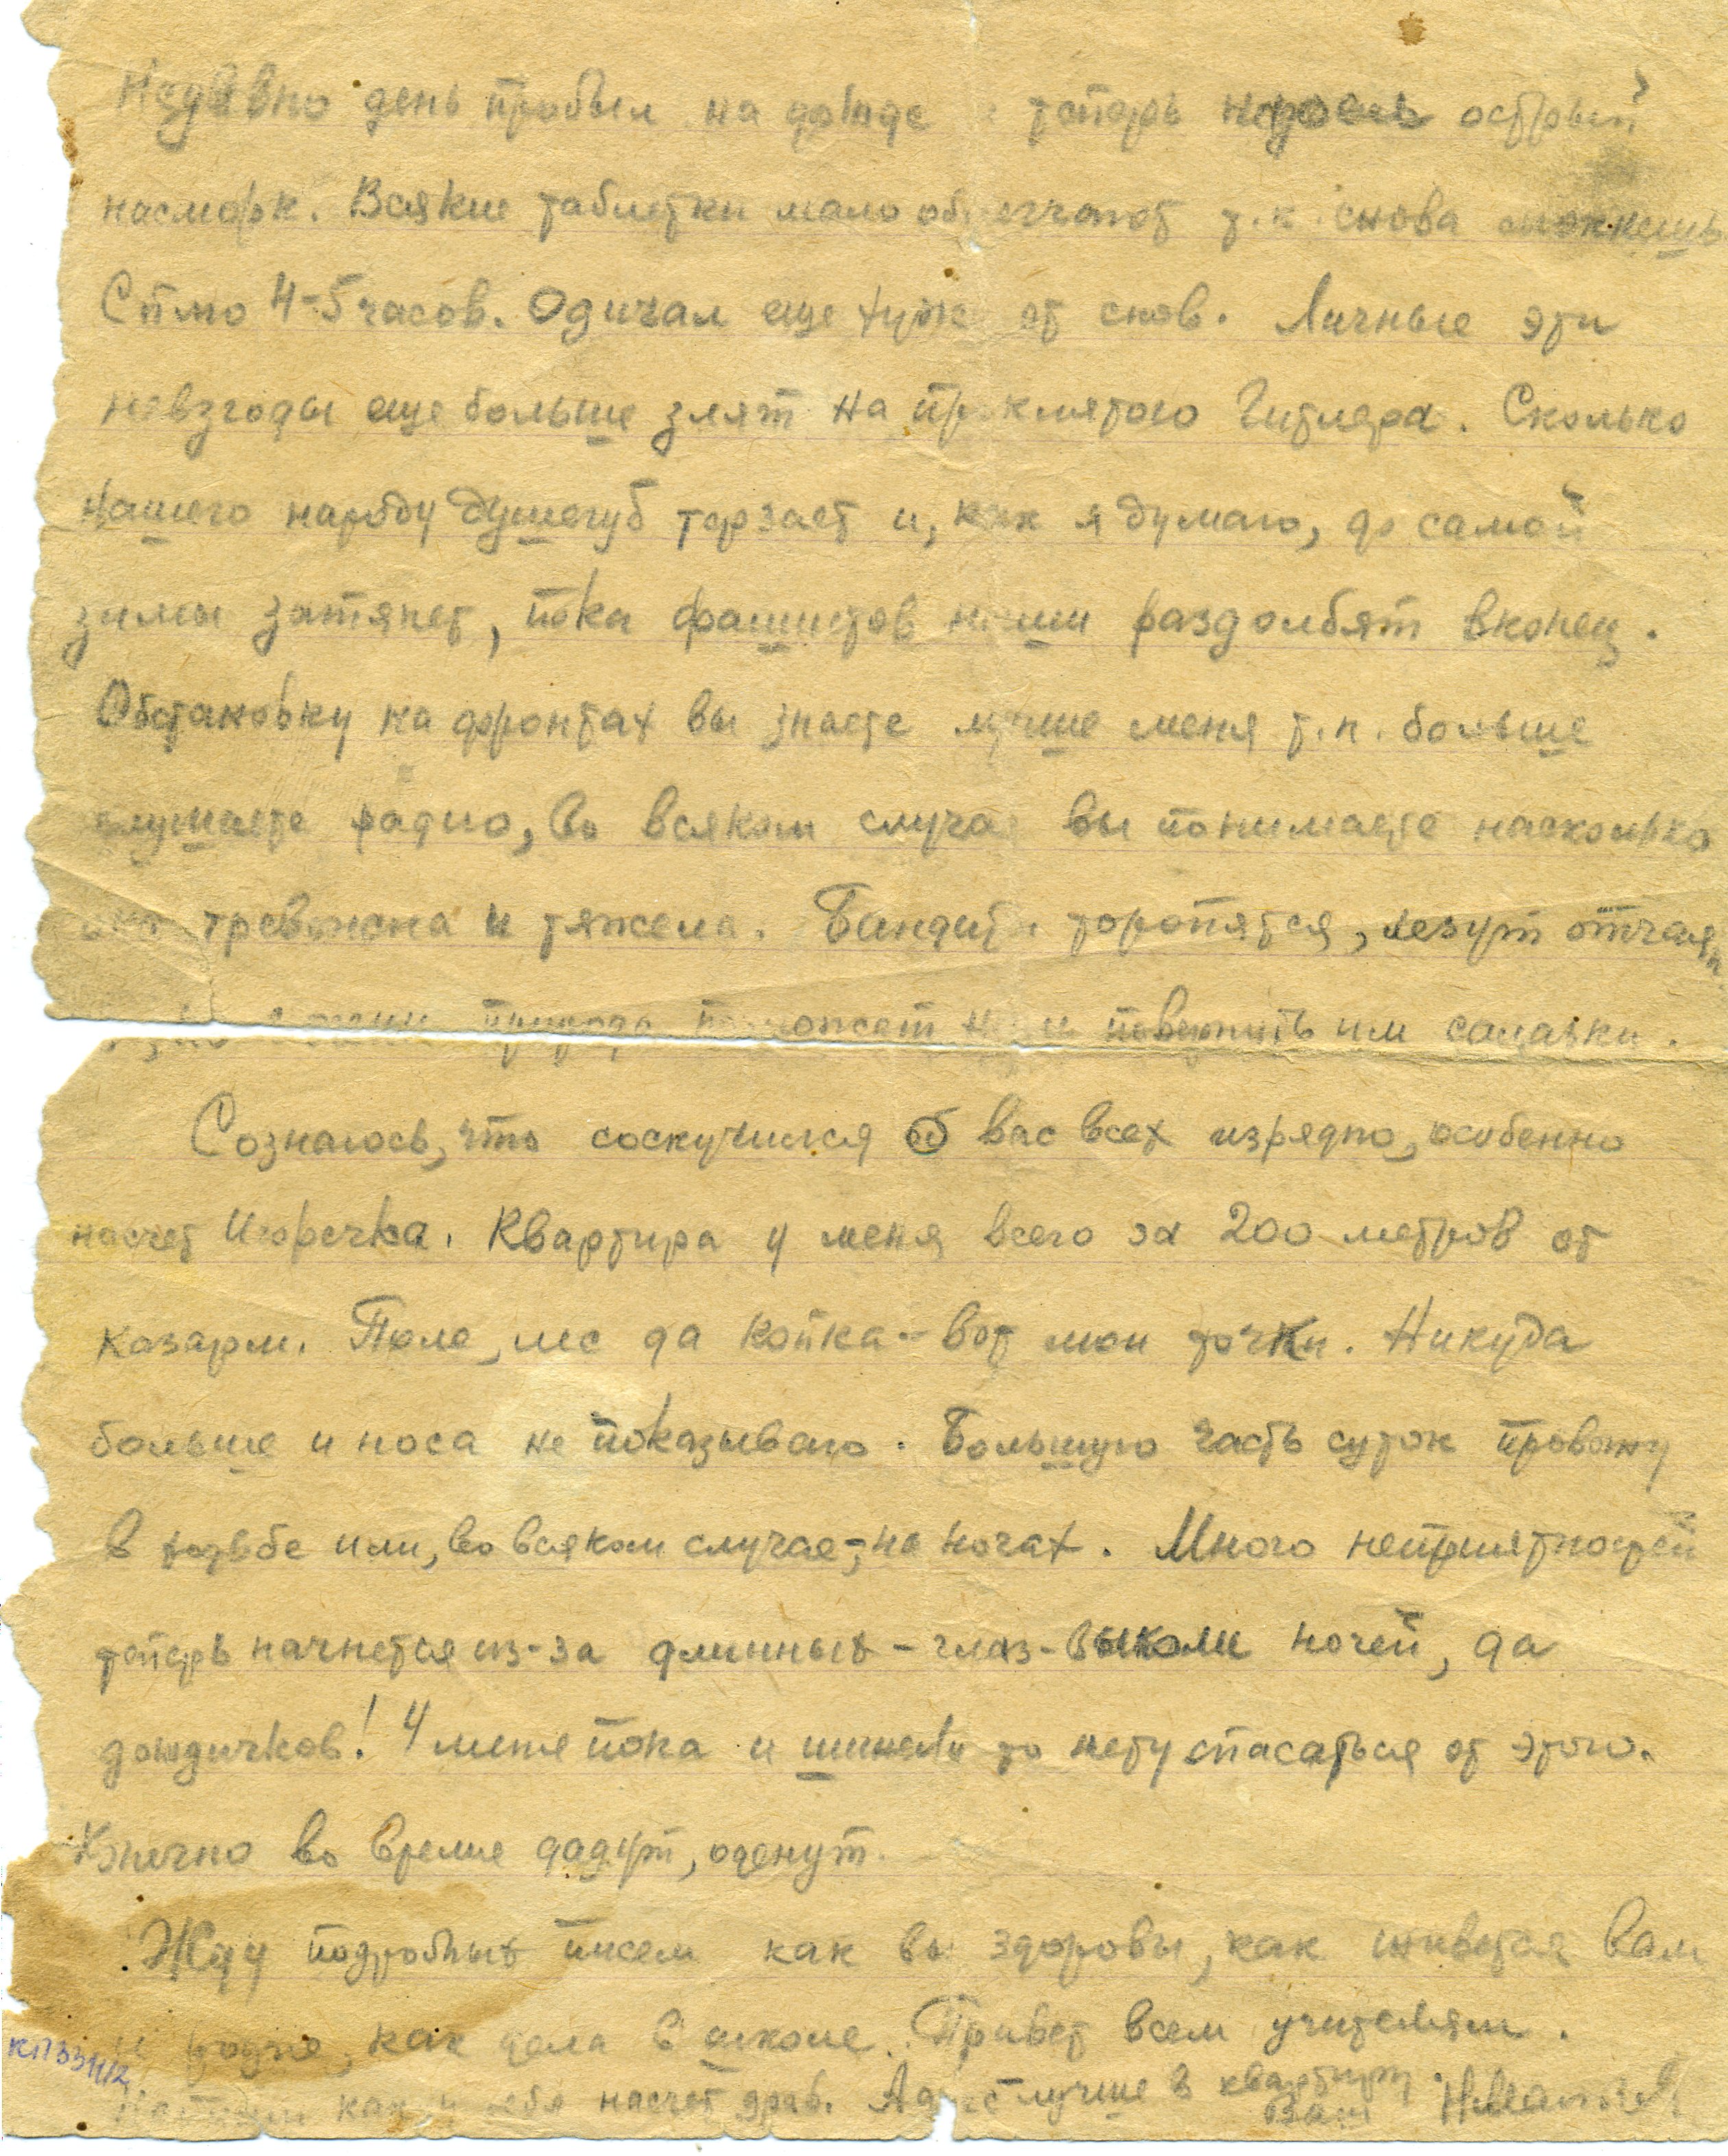 Недавно день пробыл на дожде теперь острый
насморк. Всякие таблетки мало облегчают т.к. снова
Сплю 4-5 часов. Одичал еще хуже от снов. Личные эти
невзгоды еще больше злят на проклятого Гитлера. Сколько
нашего народу душегуб терзает и, как я думаю, до самой
зимы затянет, пока фашистов наши раздолбят вконец.
Обстановку на фронтах вы знаете лучше меня т.к. больше
слушаете радио, во всяком случае вы понимаете насколько
она тревожна и тяжела. Бандиты торопятся, лезут отчаян
природа поможет им салазки.
Сознаюсь, что соскучился об вас всех изрядно, особенно
насчет Игоречка. Квартира у меня всего за 200 метров от
казарм. Поле, лес да койка - вот мои точки. Никуда
больше и носа не показываю. Большую часть суток провожу
в ходьбе или, во всяком случае, на ногах. Много неприятностей
теперь начнется из-за длинных - глаз-выколи ночей, да
дождичков! У меня пока и шинели то нету спасаться от этого.
Конечно во время дадут, оденут.
Жду подробных писем как вы здоровы, как живется вам
и родне, как дела в школе. Привет всем учителям.
как у тебя насчет дров. Адрес лучше в квартиру.
Ваш
КП331/12